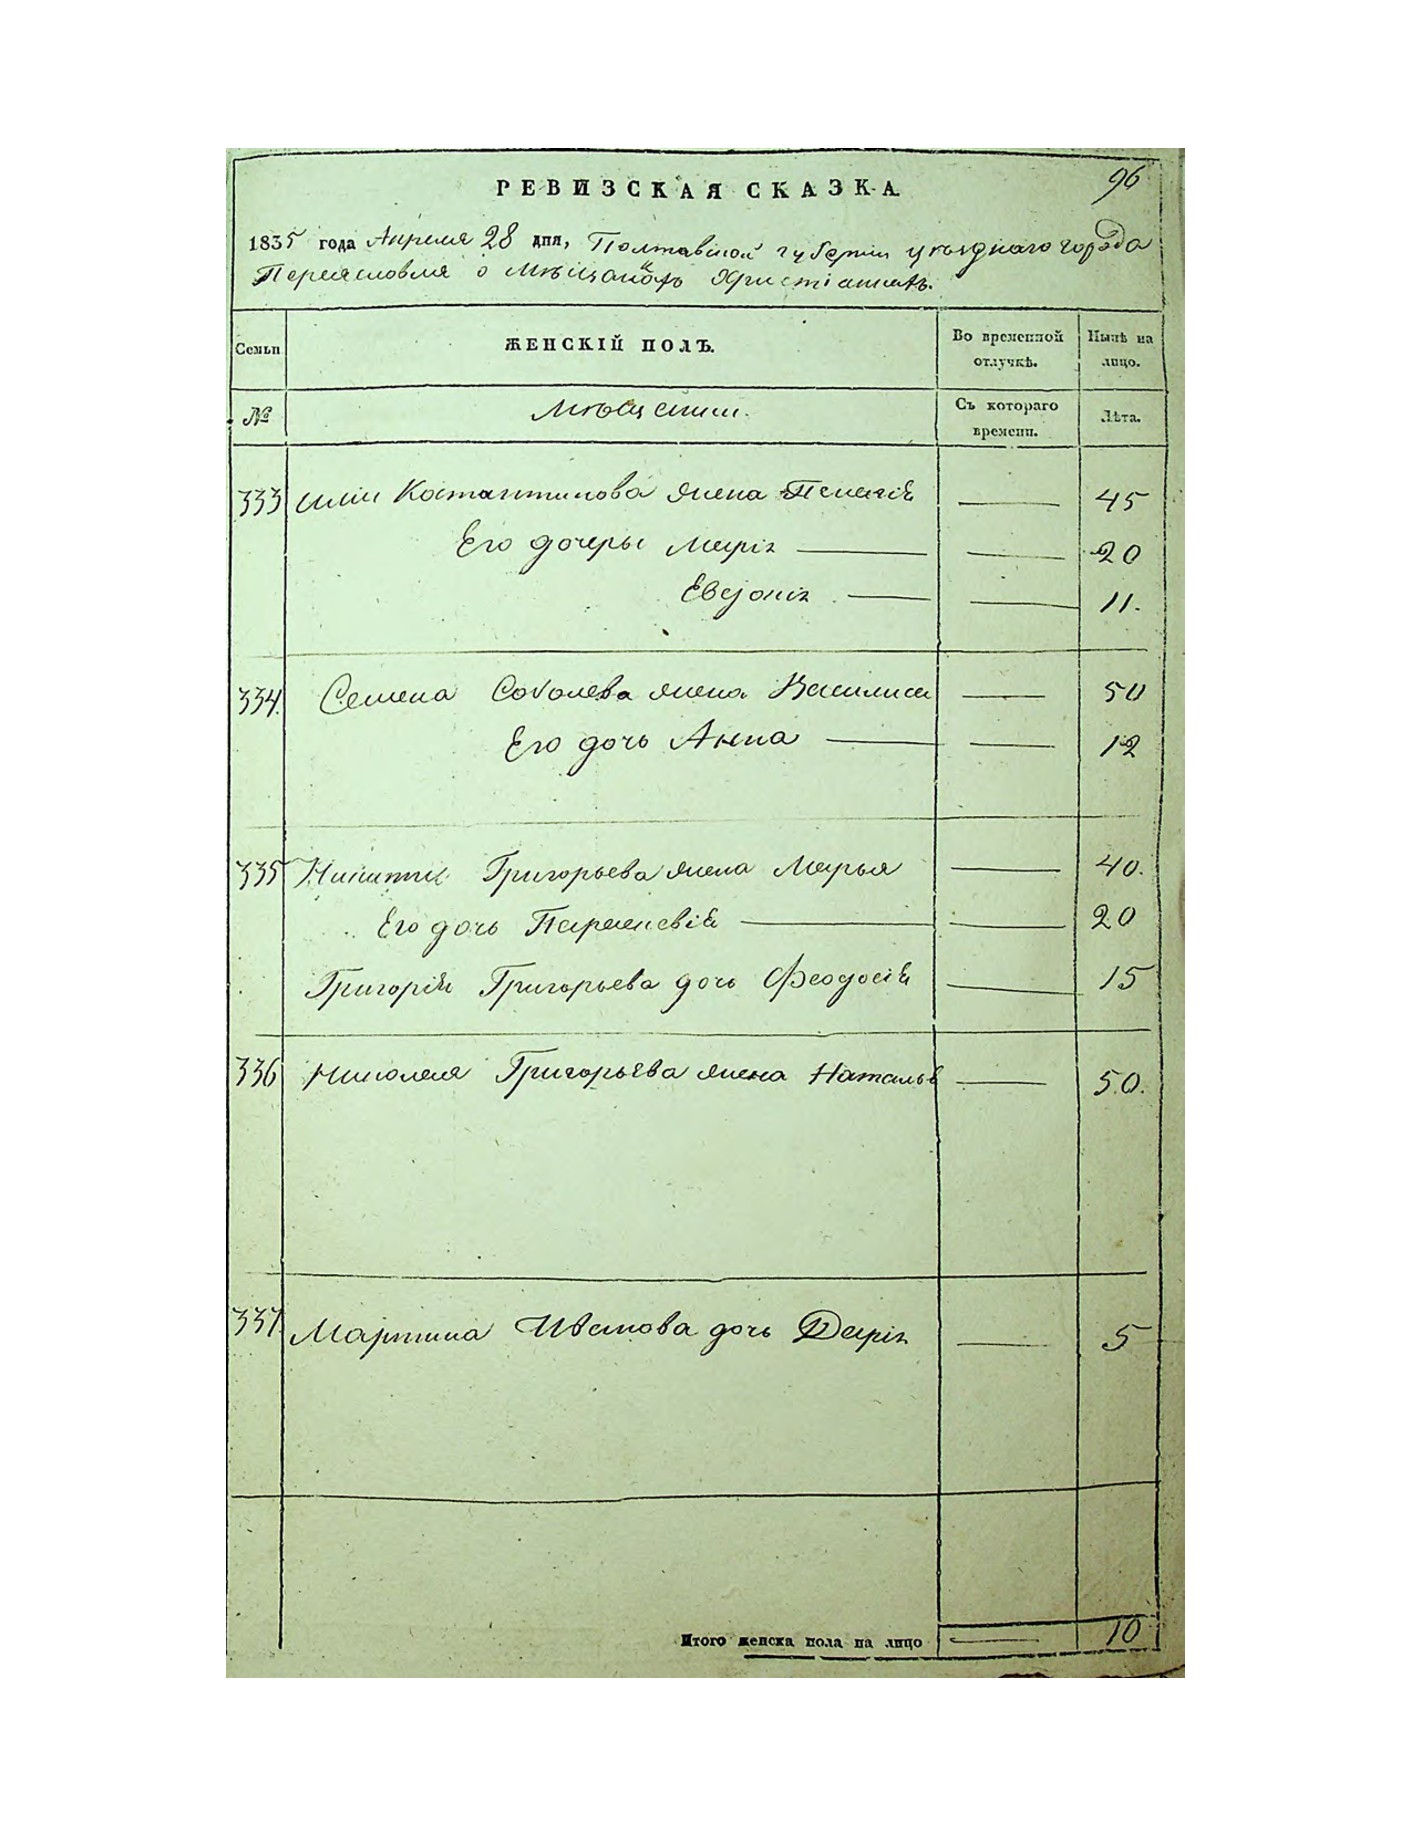 96
РЕВИЗСКАЯ СКАЗКА
1835 года Апреля 28 дня, Полтавской губернии уезднаго города
Переясловля о мѣщанахъ Христіанахъ.
Семьи
ЖЕНСКІЙ ПОЛЪ.
Во временной отлучкѣ.
Нынѣ на лицо.
№
Мѣщании.
Съ котораго времени.
Лѣта.
333 Иліи Костантинова жена Пелагія — 45
Его дочеры Марія — — 20
Евдокія — — 11.
334. Семена Соболева жена Василиса — 50
Его дочь Анна — — 12
335 Никиты Григорьева жена Марья — 40.
Его дочь Параскевія — — 20
Григорія Григорьева дочь Феодосія — 15
336 Николая Григорьева жена Наталья — 50.
337. Мартина Иванова дочь Дарія — 5
Итого женска пола на лицо — 10